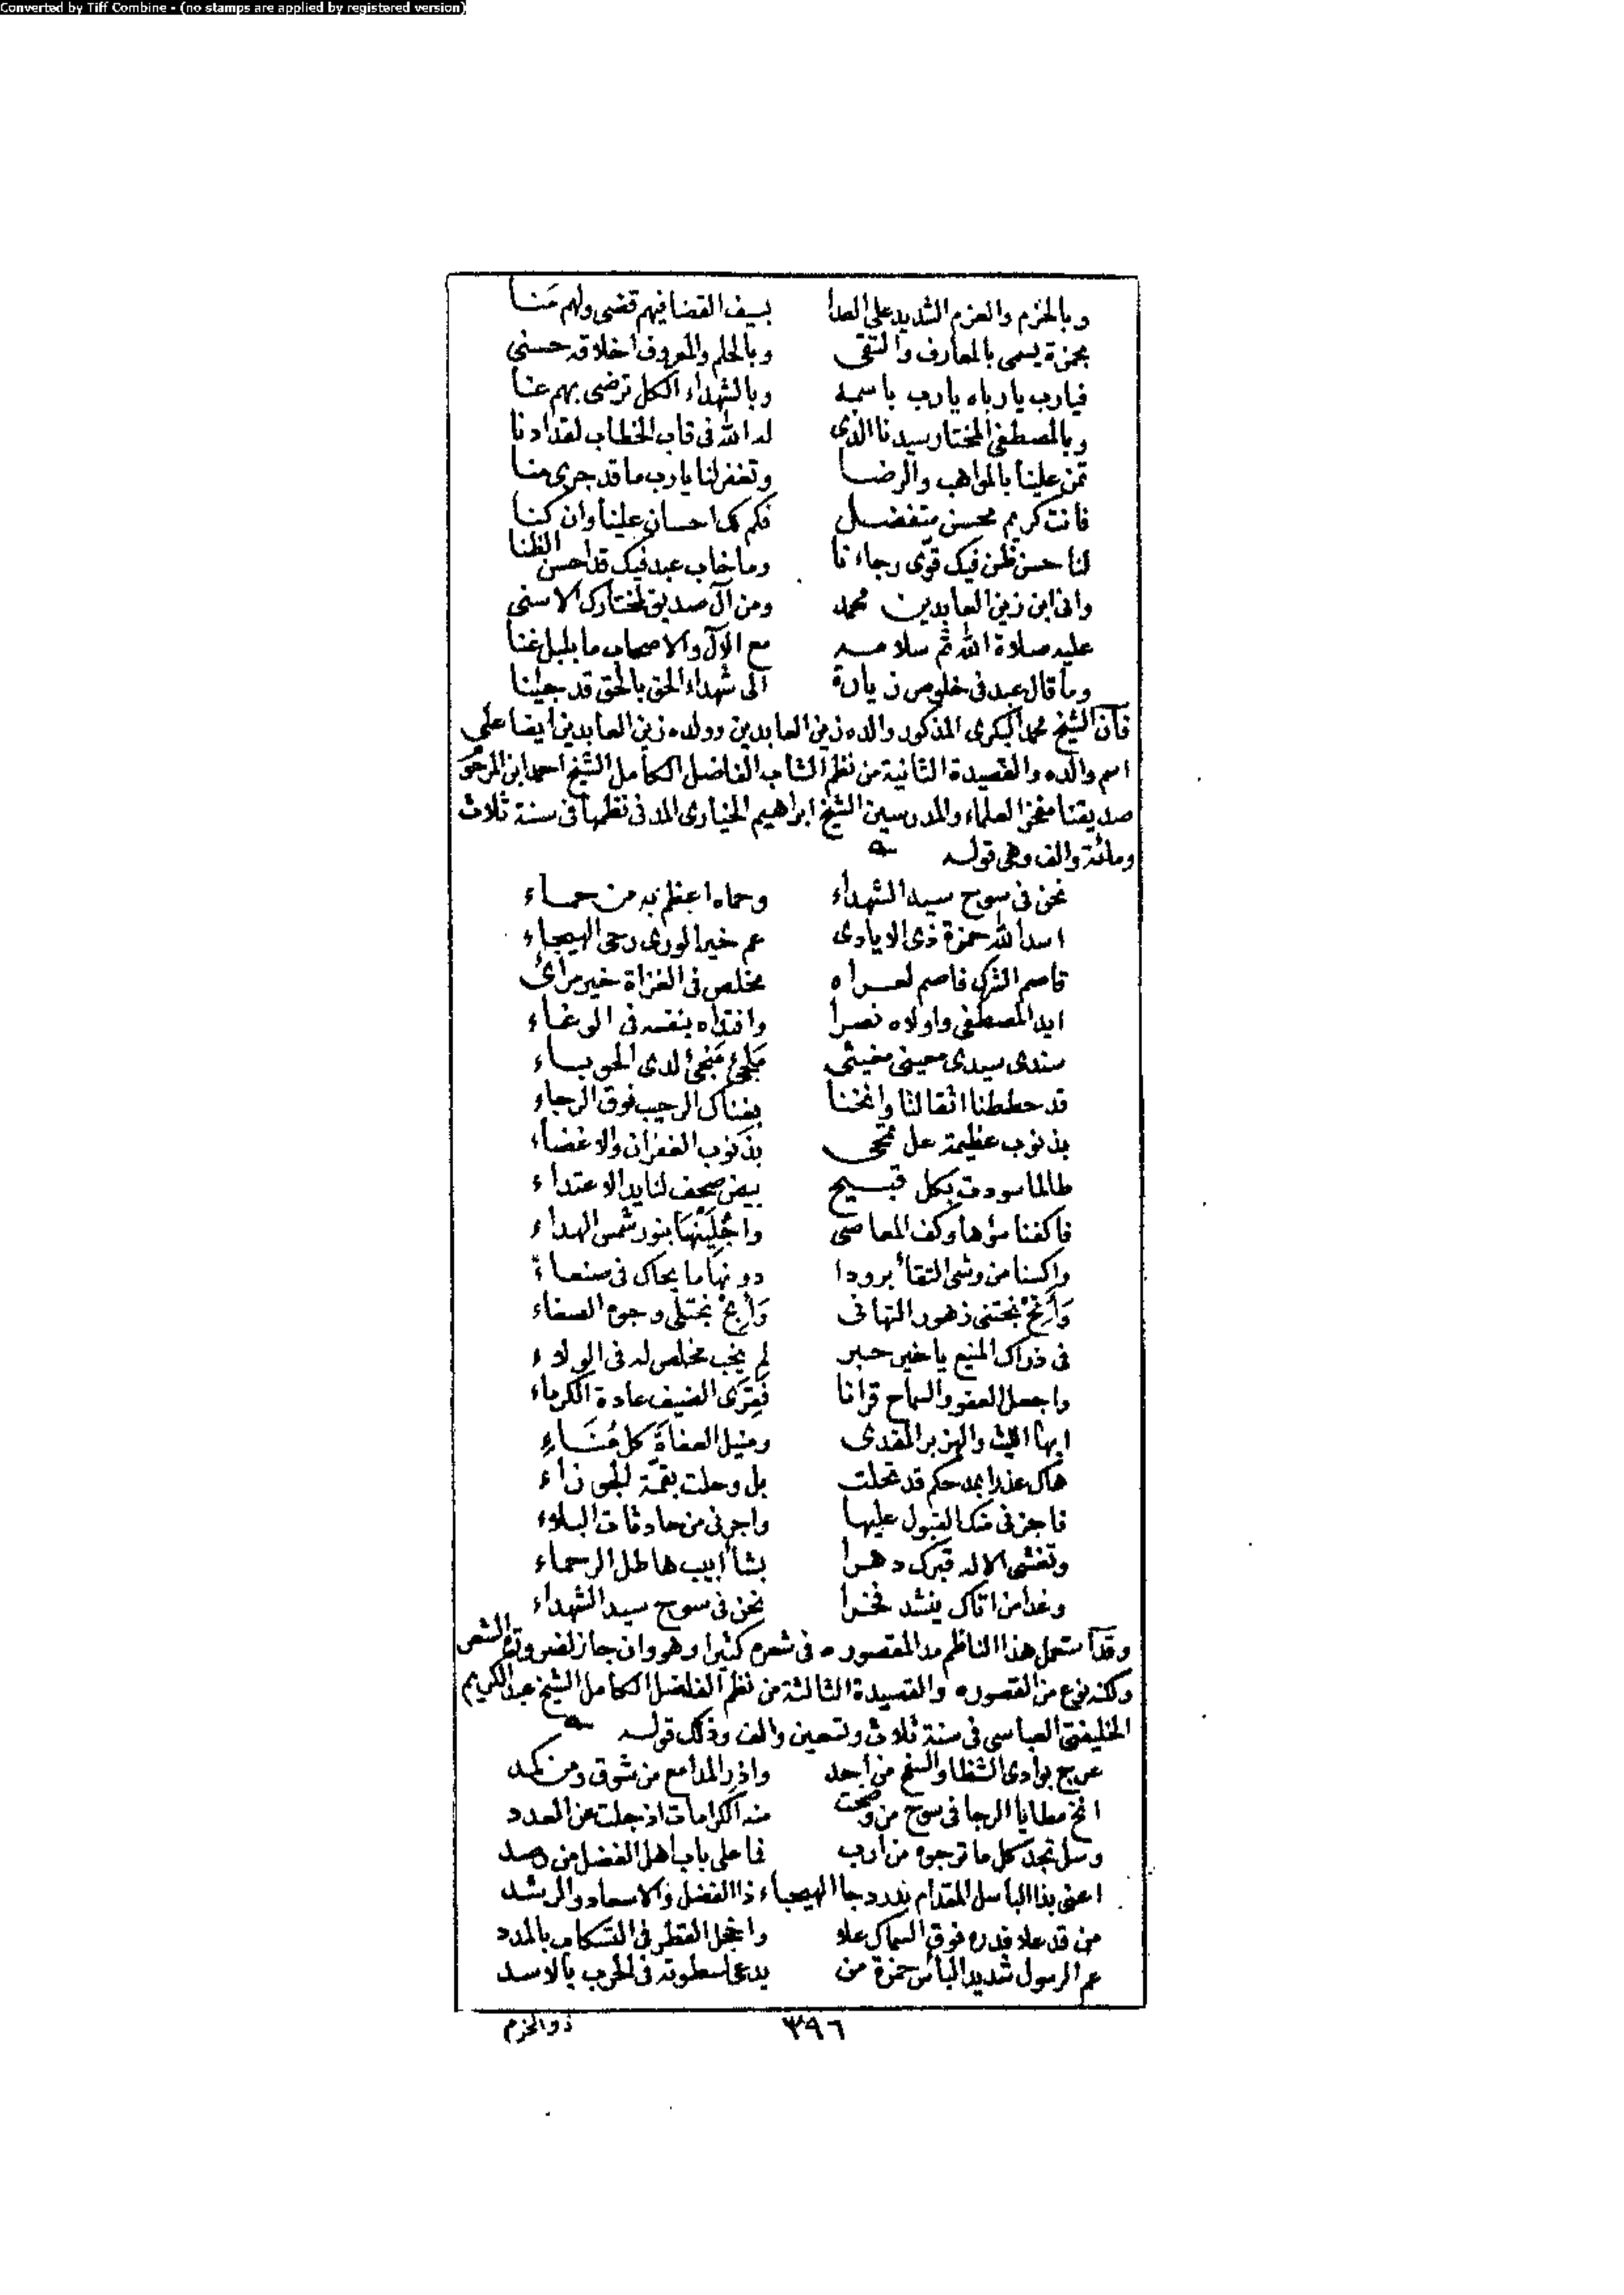 Converted by Tiff Combine - (no stamps are applied by registered version)
وبالحزم والعزم الشديد على العدا بسيف القضا فيهم قضى ولهم مَنا
بحمزة يسمى بالمعارف والتقى وبالحلم والمعروف اخلاقه حسنى
فيارب يارباه يارب باسمه وبالشهداء الكل ترضى بهم عنا
وبالمصطفى المختار سيدنا الذى له الله فى قاب الخطاب لقد ادنا
تمن علينا بالمواهب والرضا وتغفر لنا يارب ما قد جرى منا
فانت كريم محسن متفضل فكم لك احسان علينا وان كنا
لنا حسن ظن فيك قوّى رجاءنا وما خاب عبد فيك قد احسن الظنا
وانى ابن زين العابدين محمد ومن آل صديق لمختارك الاسنى
عليه صلاة الله ثم سلامه مع الآل والاصحاب ما بلبل غنا
وما قال عبد فى خلوص زيارة الى شهداء الحق بالحق قد جئنا
فان الشيخ محمد البكرى المذكور والده زين العابدين وولده زين العابدين ايضا على
اسم والده والقصيدة الثانية من نظم الشاب الفاضل الكامل الشيخ احمد ابن المرحو
صديقنا مفخر العلماء والمدرسين الشيخ ابراهيم الخيارى المدنى نظمها فى سنة ثلاث
ومائة والف وهى قوله
نحن فى سوح سيد الشهداء وحماه اعظم به من حماء
اسد الله حمزة ذى الايادى عم خير الورى رحى الهيجاء
قاصم الشرك فاصم لعراه مخلص فى الغزاة خير مرائ
ايد المصطفى واولاه نصرا وافتداه بنفسه فى الوغاء
سندى سيدى معينى مغيثى مَلجئ مَنجئ لدى الحوباء
قد حططنا اثقالنا وانخنا بفناك الرحيب فوق الرجاء
بذنوب عظيمة عل تمحى بذَنوب الغفران والاغضاء
طالما سودت بكل قبيح بيض صحف لنا يد الاعتداء
فاكفنا سؤها وكف المعاصى واجُلِيَنْها بنور شمس الهداء
واكسنا من وشى التقاء برودا دونها ما يحاك فى صنعاء
وَأَرِحْ نجتنى زهور التهانى وَأَرِحْ نجتلى وجوه الصفاء
فى ذراك المنيع يا خير حبر لم يخب مخلص له فى الولاء
واجعل العفو والسماح قرانا فَقِرَى الضيف عادة الكرماء
ايها الليث والهزبر المفدى ومنيل العفاة كل مُنَاءِ
هاك عذرا بمدحكم قد تحلت بل وحلت بقمّة الجوزاء
فاجزنى منك القبول عليها واجرنى من حادثات البلاء
وتغشى الاله قبرك دهرا بشأبيب هاطل الرحماء
وغدا من اتاك ينشد فخرا نحن فى سوح سيد الشهداء
وقد استعمل هذا الناظم مد المقصوره فى شعره كثيرا وهو وان جاز لضرورة الشعر
ولكنه نوع من القصوره والقصيدة الثالثة من نظم الفاضل الكامل الشيخ عبد الكريم
الخليفتى العباسى فى سنة ثلاث وتسعين والف وذلك قوله
عرج بوادى الشظا والسفح من احد واذر المدامع من شوق ومن كمد
انخ مطايا الرجا فى سوح من وضحت منه الكرامات اذ جلت عن العدد
وسل تجد كل ما ترجوه من ارب فما على باب اهل الفضل من صد
اعنى بذا الباسل المقدام بدر دجا الهيجاء ذا الفضل والاسعاد والرشد
من قد علا قدره فوق السماك علا واخجل القطر فى التسكاب بالمدد
عم الرسول شديد البأس حمزة من يدعى لسطوته فى الحرب بالاسد
٣٩٦
ذو الحزم